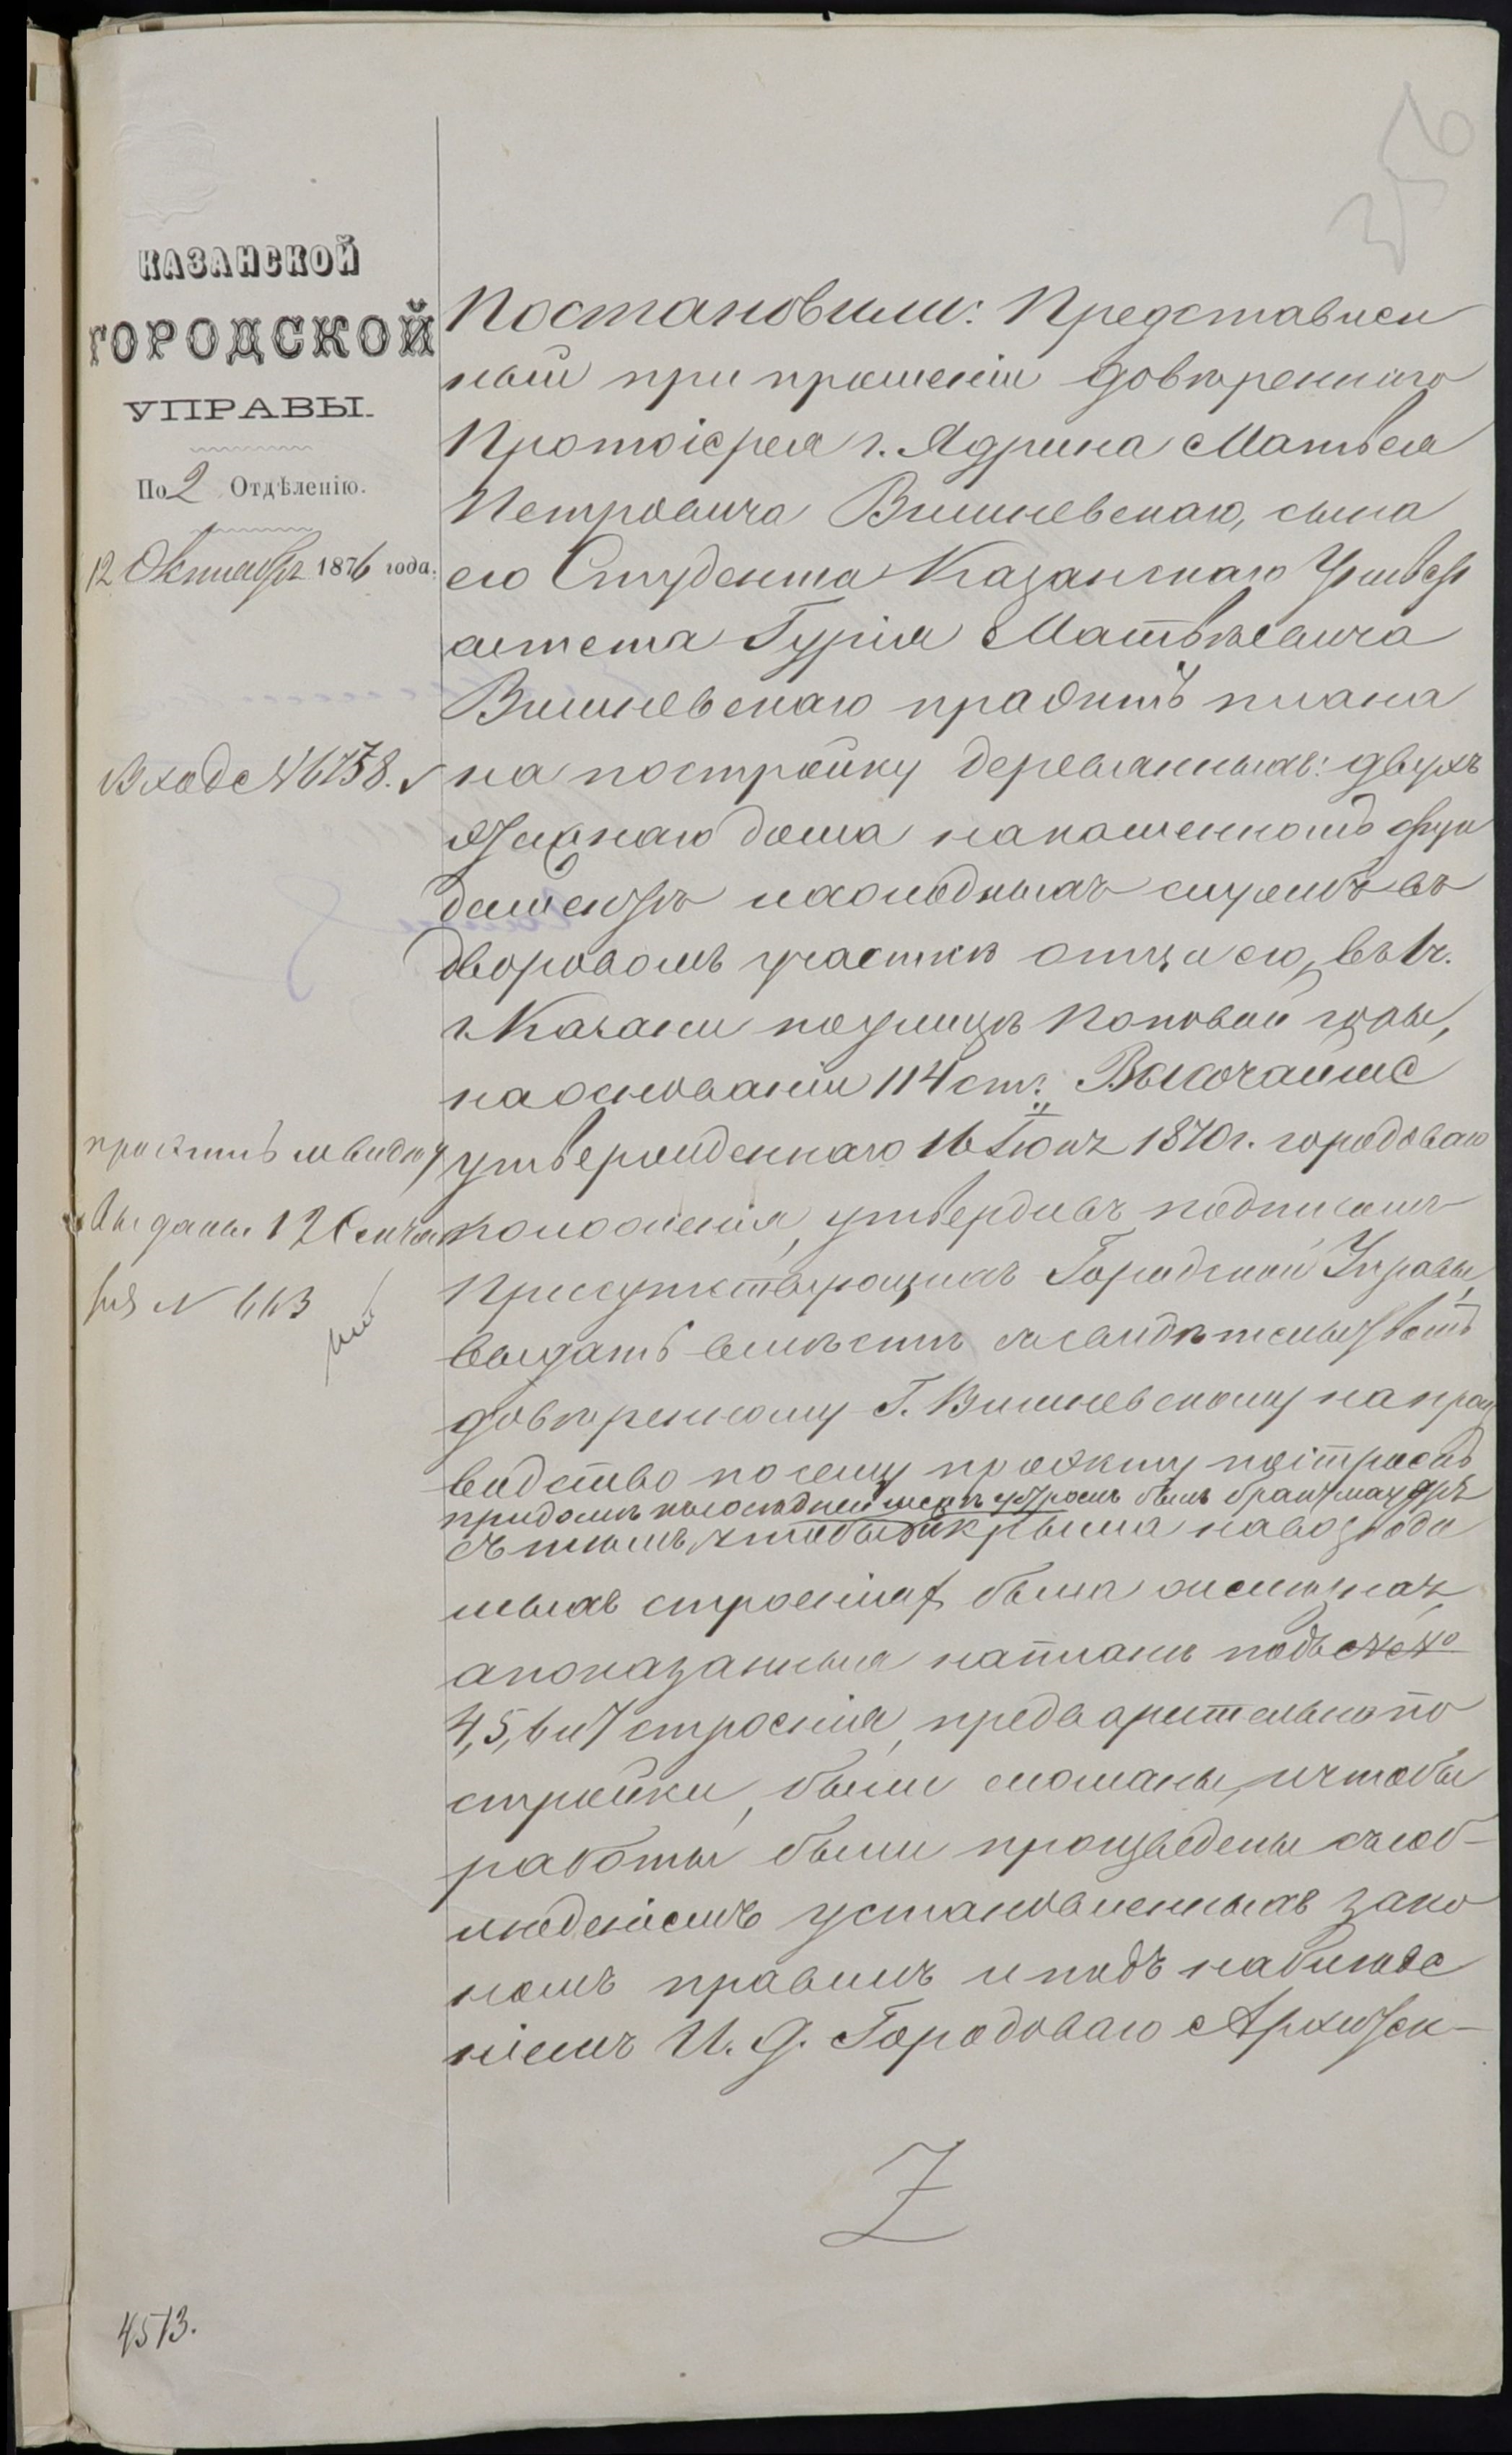 356
КАЗАНСКОЙ
ГОРОДСКОЙ
УПРАВЫ.
По 2 Отдѣленію.
12 Октября 1876 года.
Входе № 6758.
проэктъ и видъ
выданы 12 Октяб
ря № 663
Постановили: Представлен
ный при прошеніи довѣреннаго
Протоіерея г. Ядрина Матвея
Петровича Вишневскаго, сына
его Студента Казанскаго Универ
ситета Гурія Матвѣевича
Вишневскаго проэктъ плана
на постройку деревянныхъ: двухъ
этажнаго дома на каменномъ фун
даментѣ и холодныхъ службъ въ
дворовомъ участкѣ отца его, въ 1 ч.
г. Казани по улицѣ Поповой горы,
на основаніи 114 ст. Высочайше
утвержденнаго 16 Іюня 1870 г. городоваго
положенія, утвердивъ подписомъ
Присутствующихъ Городской Управы,
выдать вмѣстѣ съ свидѣтельствомъ
довѣренному Г. Вишневскому на произ
водство по сему проэкту построекъ
съ тѣмъ, чтобы крыша на возводи
мыхъ строеніяхъ была желѣзная,
а показанныя на планѣ подъ №№
4, 5, 6 и 7 строенія, предварительно по
стройки, были сломаны, и чтобы
работы были произведены съ соб-
люденіемъ установленныхъ зако
номъ правилъ и подъ наблюде
ніемъ И. Д. Городоваго Архитек-
4513.